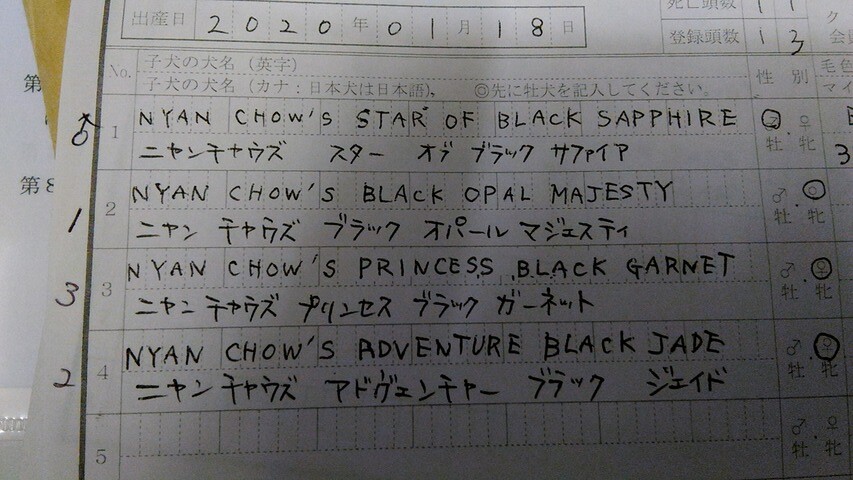 出産日 2020年01月18日
死亡頭数 1 1
登録頭数 1 3
ク
会員
No. 子犬の犬名（英字）
子犬の犬名（カナ：日本犬は日本語）、 ◎先に牡犬を記入してください。 性別 毛色
マイ
第
♂ 1 NYAN CHOW'S STAR OF BLACK SAPPHIRE ♂・♀
ニャンチャウズ スター オブ ブラック サファイア 牡 牝 3
第8
1 2 NYAN CHOW'S BLACK OPAL MAJESTY ♂・♀
ニャン チャウズ ブラック オパール マジェスティ 牡 牝
3 3 NYAN CHOW'S PRINCESS BLACK GARNET ♂・♀
ニャン チャウズ プリンセス ブラック ガーネット 牡 牝
2 4 NYAN CHOW'S ADVENTURE BLACK JADE ♂・♀
ニャン チャウズ アドヴェンチャー ブラック ジェイド 牡 牝
5 ♂・♀
牡 牝